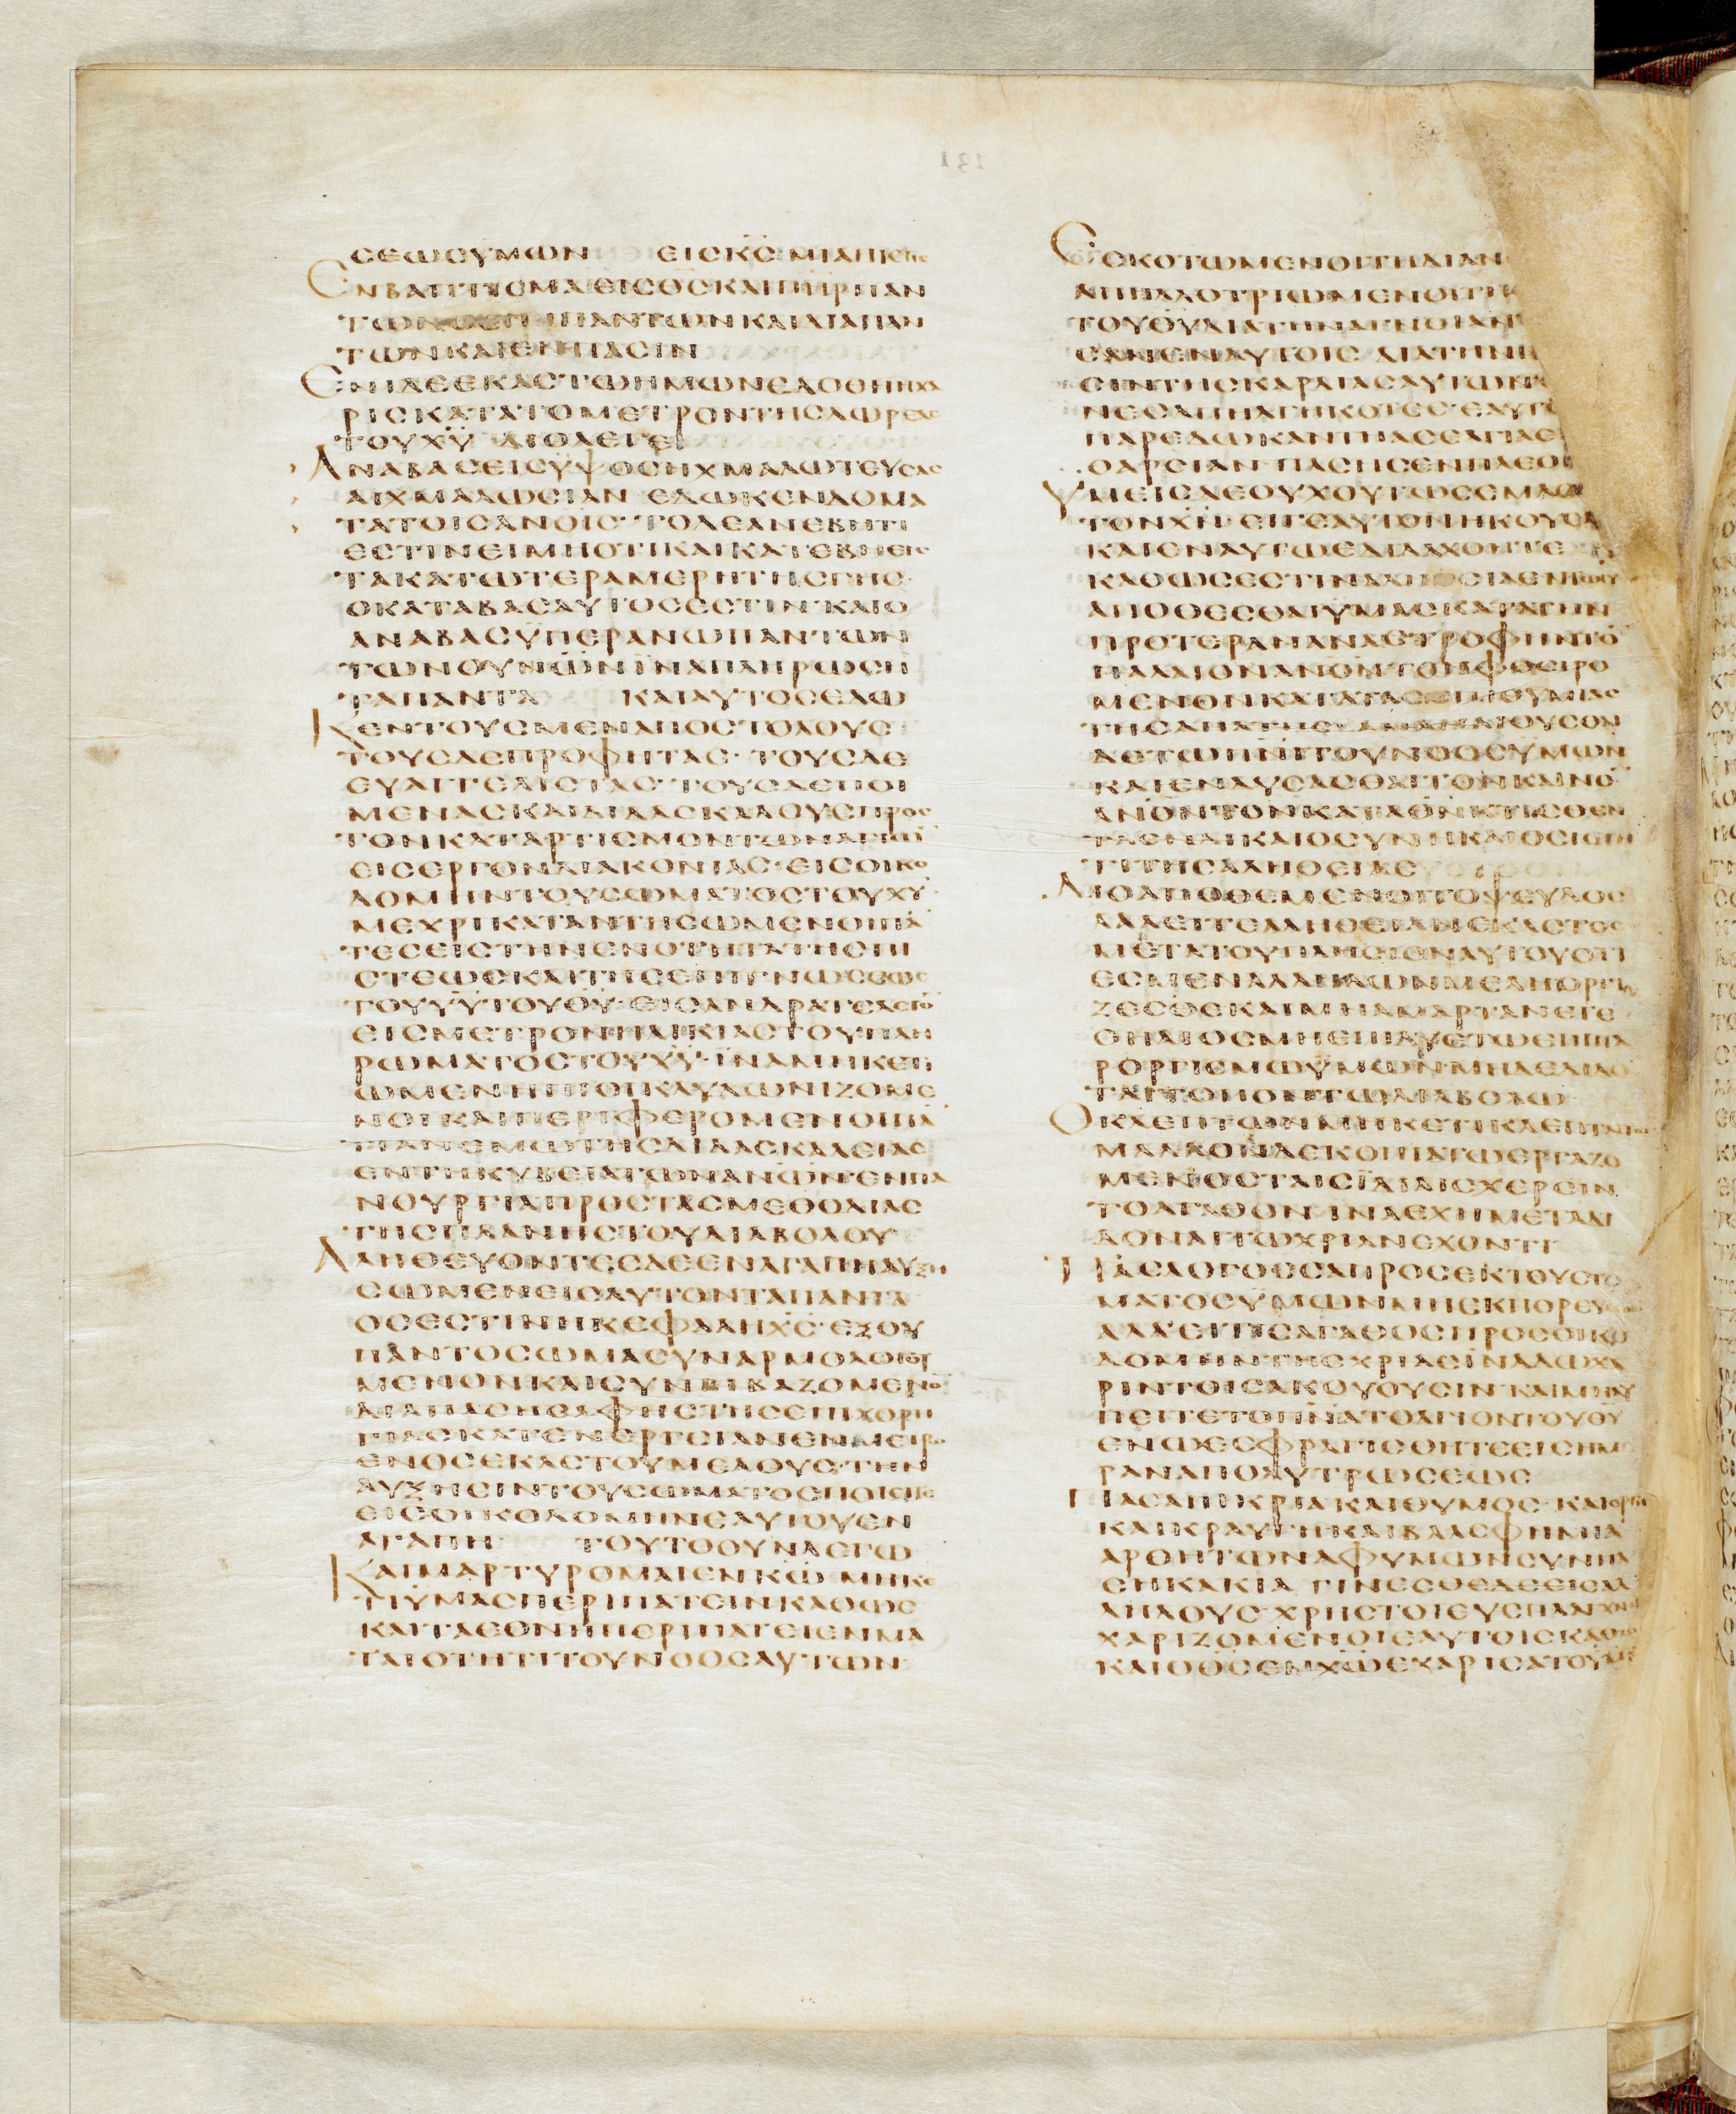 ϹΕΩϹΥΜΩΝ ΕΙϹΚϹΜΙΑΠΙϹΤΙϹ
ΕΝΒΑΠΤΙϹΜΑΕΙϹΘϹΚΑΙΠΗΡΠΑΝ
ΤΩΝΟΕΠΙΠΑΝΤΩΝΚΑΙΔΙΑΠΑΝ
ΤΩΝΚΑΙΕΝΠΑϹΙΝ
ΕΝΙΔΕΕΚΑϹΤΩΗΜΩΝΕΔΟΘΗΗΧΑ
ΡΙϹΚΑΤΑΤΟΜΕΤΡΟΝΤΗϹΔΩΡΕΑϹ
ΤΟΥΧΥ ΔΙΟΛΕΓΕΙ
ΑΝΑΒΑϹΕΙϹΥΨΟϹΗΧΜΑΛΩΤΕΥϹΑϹ
ΑΙΧΜΑΛΩϹΙΑΝ ΕΔΩΚΕΝΔΟΜΑ
ΤΑΤΟΙϹΑΝΟΙϹ ΤΟΔΕΑΝΕΒΗΤΙ
ΕϹΤΙΝΕΙΜΗΟΤΙΚΑΙΚΑΤΕΒΗΕΙϹ
ΤΑΚΑΤΩΤΕΡΑΜΕΡΗΤΗϹΓΗϹ
ΟΚΑΤΑΒΑϹΑΥΤΟϹΕϹΤΙΝ ΚΑΙΟ
ΑΝΑΒΑϹΥΠΕΡΑΝΩΠΑΝΤΩΝ
ΤΩΝΟΥΝΩΝΙΝΑΠΛΗΡΩϹΗ
ΤΑΠΑΝΤΑ ΚΑΙΑΥΤΟϹΕΔΩ
ΚΕΝΤΟΥϹΜΕΝΑΠΟϹΤΟΛΟΥϹ
ΤΟΥϹΔΕΠΡΟΦΗΤΑϹ· ΤΟΥϹΔΕ
ΕΥΑΓΓΕΛΙϹΤΑϹ· ΤΟΥϹΔΕΠΟΙ
ΜΕΝΑϹΚΑΙΔΙΔΑϹΚΑΛΟΥϹΠΡΟϹ
ΤΟΝΚΑΤΑΡΤΙϹΜΟΝΤΩΝΑΓΙΩ̅
ΕΙϹΕΡΓΟΝΔΙΑΚΟΝΙΑϹ· ΕΙϹΟΙΚΟ
ΔΟΜΗΝΤΟΥϹΩΜΑΤΟϹΤΟΥΧΥ
ΜΕΧΡΙΚΑΤΑΝΤΗϹΩΜΕΝΟΙΠΑ̅
ΤΕϹΕΙϹΤΗΝΕΝΟΤΗΤΑΤΗϹΠΙ
ϹΤΕΩϹΚΑΙΤΗϹΕΠΙΓΝΩϹΕΩϹ
ΤΟΥΥΥΤΟΥΘΥ·ΕΙϹΑΝΔΡΑΤΕΛΕΙΟ̅
ΕΙϹΜΕΤΡΟΝΗΛΙΚΙΑϹΤΟΥΠΛΗ
ΡΩΜΑΤΟϹΤΟΥΧΥ·ΙΝΑΜΗΚΕΤΙ
ΩΜΕΝΝΗΠΙΟΙΚΛΥΔΩΝΙΖΟΜΕ
ΝΟΙΚΑΙΠΕΡΙΦΕΡΟΜΕΝΟΙΠΑ̅
ΤΙΑΝΕΜΩΤΗϹΔΙΔΑϹΚΑΛΕΙΑϹ
ΕΝΤΗΚΥΒΕΙΑΤΩΝΑΝΩΝ·ΕΝΠΑ
ΝΟΥΡΓΙΑΠΡΟϹΤΑϹΜΕΘΟΔΙΑϹ
ΤΗϹΠΛΑΝΗϹΤΟΥΔΙΑΒΟΛΟΥ
ΑΛΗΘΕΥΟΝΤΕϹΔΕΕΝΑΓΑΠΗΑΥΞΗ
ϹΩΜΕΝΕΙϹΑΥΤΟΝΤΑΠΑΝΤΑ
ΟϹΕϹΤΙΝΗΚΕΦΑΛΗΧϹ·ΕΞΟΥ
ΠΑΝΤΟϹΩΜΑϹΥΝΑΡΜΟΛΟΓΟΥ
ΜΕΝΟΝΚΑΙϹΥΝΒΙΒΑΖΟΜΕΝΟ̅
ΔΙΑΠΑϹΗϹΑΦΗϹΤΗϹΕΠΙΧΟΡΗ
ΓΙΑϹΚΑΤΕΝΕΡΓΕΙΑΝΕΝΜΕΤΡΩ
ΕΝΟϹΕΚΑϹΤΟΥΜΕΛΟΥϹ·ΤΗΝ
ΑΥΞΗϹΙΝΤΟΥϹΩΜΑΤΟϹΠΟΙΕΙΤΑΙ
ΕΙϹΟΙΚΟΔΟΜΗΝΕΑΥΤΟΥΕΝ
ΑΓΑΠΗ ΤΟΥΤΟΟΥΝΛΕΓΩ
ΚΑΙΜΑΡΤΥΡΟΜΑΙΕΝΚΩ ΜΗΚΕ
ΤΙΥΜΑϹΠΕΡΙΠΑΤΕΙΝΚΑΘΩϹ
ΚΑΙΤΑΕΘΝΗΠΕΡΙΠΑΤΕΙΕΝΜΑ
ΤΑΙΟΤΗΤΙΤΟΥΝΟΟϹΑΥΤΩΝ
ΕϹΚΟΤΩΜΕΝΟΙΤΗΔΙΑΝ
ΑΠΗΛΛΟΤΡΙΩΜΕΝΟΙΤΗϹ
ΤΟΥΘΥΔΙΑΤΗΝΑΓΝΟΙΑΝΤ
ϹΑΝΕΝΑΥΤΟΙϹ ΔΙΑΤΗΝΠ
ϹΙΝΤΗϹΚΑΡΔΙΑϹΑΥΤΩΝ
ΝΕϹΑΠΗΛΓΗΚΟΤΕϹ·ΕΑΥΤΟ
ΠΑΡΕΔΩΚΑΝΤΗΑϹΕΛΓΙΑΕ
ΘΑΡϹΙΑΝ ΠΑϹΗϹΕΝΠΛΕΟ
ΥΜΕΙϹΔΕΟΥΧΟΥΤΩϹΕΜΑΘ
ΤΟΝΧΝ ΕΙΓΕΑΥΤΟΝΗΚΟΥϹΑ
ΚΑΙΕΝΑΥΤΩΕΔΙΔΑΧΘΗΤΕ
ΚΑΘΩϹΕϹΤΙΝΑΛΗΘΕΙΑΕΝΤΩΙΥ
ΑΠΟΘΕϹΘΑΙΥΜΑϹΚΑΤΑΤΗΝ
ΠΡΟΤΕΡΑΝΑΝΑϹΤΡΟΦΗΝΤΟ̅
ΠΑΛΑΙΟΝΑΝΟΝΤΟΝΦΘΕΙΡΟ
ΜΕΝΟΝΚΑΤΑΤΑϹΕΠΙΘΥΜΙΑϹ
ΤΗϹΑΠΑΤΗϹ ΑΝΑΝΑΙΟΥϹΘΑΙ
ΔΕΤΩΠΝΙΤΟΥΝΟΟϹΥΜΩΝ
ΚΑΙΕΝΔΥϹΑϹΘΑΙΤΟΝΚΑΙΝΟ̅
ΑΝΟΝΤΟΝΚΑΤΑΘΝΚΤΙϹΘΕΝ
ΤΑΕΝΔΙΚΑΙΟϹΥΝΗΚΑΙΟϹΙΟΤΗ
ΤΙΤΗϹΑΛΗΘΕΙΑϹ
ΔΙΟΑΠΟΘΕΜΕΝΟΙΤΟΨΕΥΔΟϹ
ΛΑΛΕΙΤΕΑΛΗΘΕΙΑΝΕΚΑϹΤΟϹ
ΜΕΤΑΤΟΥΠΛΗϹΙΟΝΑΥΤΟΥΟΤΙ
ΕϹΜΕΝΑΛΛΗΛΩΝΜΕΛΗΟΡΓΙ
ΖΕϹΘΕΚΑΙΜΗΑΜΑΡΤΑΝΕΤΕ
ΟΗΛΙΟϹΜΗΕΠΙΔΥΕΤΩΕΠΙΠΑ
ΡΟΡΓΙϹΜΩΥΜΩΝ·ΜΗΔΕΔΙΔΟ
ΤΑΙΤΟΠΟΝΤΩΔΙΑΒΟΛΩ
ΟΚΛΕΠΤΩΝΜΗΚΕΤΙΚΛΕΠΤΕΤΩ
ΜΑΛΛΟΝΔΕΚΟΠΙΑΤΩΕΡΓΑΖΟ
ΜΕΝΟϹΤΑΙϹΙΔΙΑΙϹΧΕΡϹΙΝ
ΤΟΑΓΑΘΟΝ·ΙΝΑΕΧΗΜΕΤΑΔΙ
ΔΟΝΑΙΤΩΧΡΙΑΝΕΧΟΝΤΙ
ΠΑϹΛΟΓΟϹϹΑΠΡΟϹΕΚΤΟΥϹΤΟ
ΜΑΤΟϹΥΜΩΝΜΗΕΚΠΟΡΕΥ
ΑΛΛΕΙΤΙϹΑΓΑΘΟϹΠΡΟϹΟΙΚΟ
ΔΟΜΗΝΤΗϹΧΡΙΑϹΙΝΑΔΩΧΑ
ΡΙΝΤΟΙϹΑΚΟΥΟΥϹΙΝ·ΚΑΙΜΗΛΥ
ΠΕΙΤΕΤΟΠΝΑΤΟΑΓΙΟΝΤΟΥΘΥ
ΕΝΩΕϹΦΡΑΓΙϹΘΗΤΕΕΙϹΗΜΕ
ΡΑΝΑΠΟΛΥΤΡΩϹΕΩϹ
ΠΑϹΑΠΙΚΡΙΑΚΑΙΘΥΜΟϹ·ΚΑΙΟΡΓΗ
ΚΑΙΚΡΑΥΓΗΚΑΙΒΛΑϹΦΗΜΙΑ
ΑΡΘΗΤΩΝΑΦΥΜΩΝϹΥΝΠΑ
ϹΗΚΑΚΙΑ ΓΙΝΕϹΘΕΔΕΕΙϹΑΛ
ΛΗΛΟΥϹ·ΧΡΗϹΤΟΙΕΥϹΠΛΑΝΧΝΟΙ
ΧΑΡΙΖΟΜΕΝΟΙΕΑΥΤΟΙϹΚΑΘΩϹ
ΚΑΙΟΘϹΕΝΧΩΕΧΑΡΙϹΑΤΟΥΜΙ